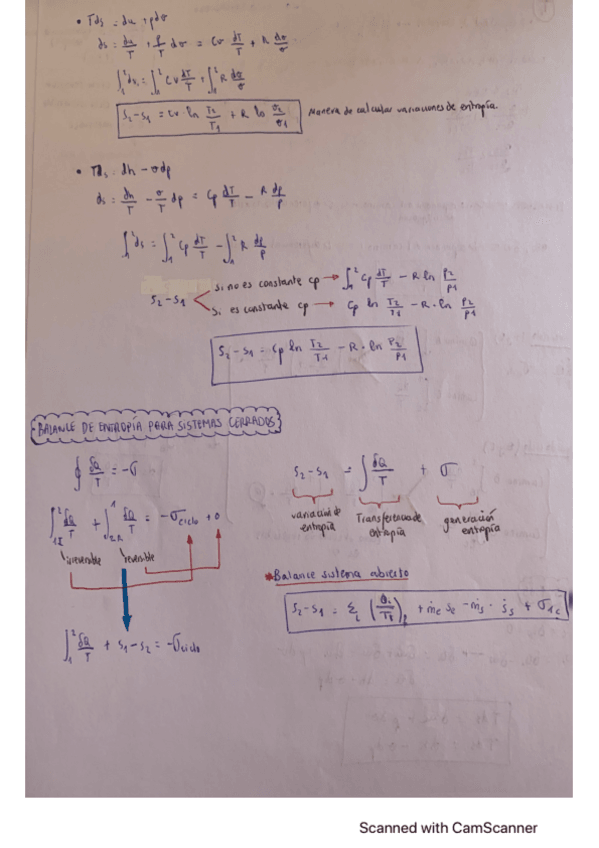 • Tds = du + pdσ
ds = du/T + p/T dσ = Cv dT/T + R dσ/σ
∫₁² ds = ∫₁² Cv dT/T + ∫₁² R dσ/σ
s₂ - s₁ = Cv ln T₂/T₁ + R ln σ₂/σ₁ Manera de calcular variaciones de entropía.
• Tds = dh - σdp
ds = dh/T - σ/T dp = Cp dT/T - R dp/p
∫₁² ds = ∫₁² Cp dT/T - ∫₁² R dp/p
Si no es constante cp → ∫₁² Cp dT/T - R ln P₂/P₁
s₂ - s₁
Si es constante cp → Cp ln T₂/T₁ - R · ln P₂/P₁
s₂ - s₁ = Cp ln T₂/T₁ - R · ln P₂/P₁
BALANCE DE ENTROPÍA PARA SISTEMAS CERRADOS
∮ δQ/T = -σ
s₂ - s₁ = ∫ δQ/T + σ
variación de entropía
Transferencia de entropía
generación entropía
∫₁I² δQ/T + ∫₂R¹ δQ/T = -σciclo + 0
irreversible reversible
*Balance sistema abierto
s₂ - s₁ = Σᵢ (Q̇ᵢ/Tᵢ) + ṁe se - ṁs · ṡs + σ̇
∫₁² δQ/T + s₁ - s₂ = -σciclo
Scanned with CamScanner